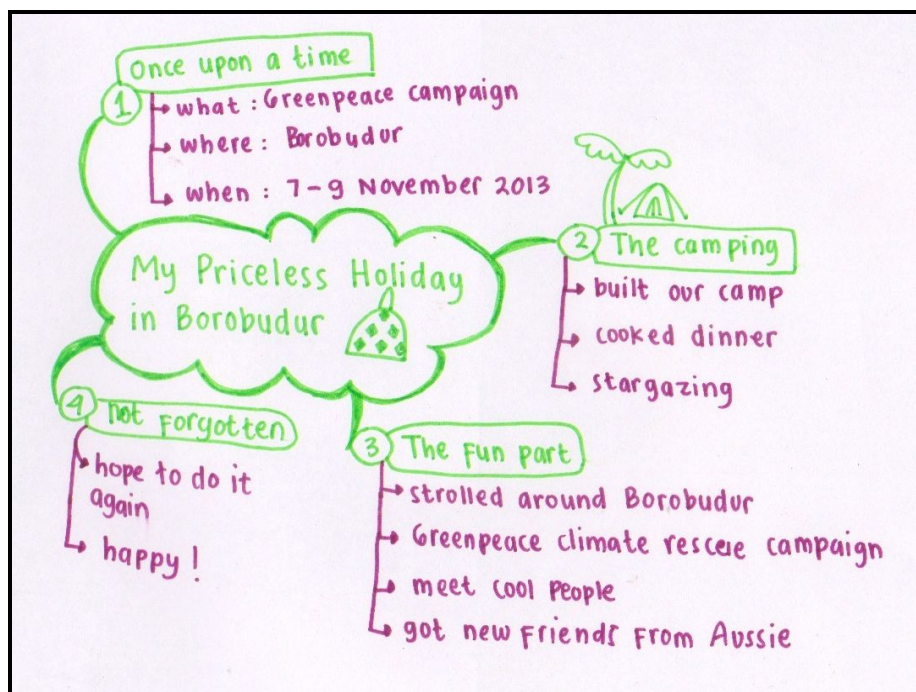 Once upon a time
1
what : Greenpeace campaign
where : Borobudur
when : 7-9 November 2013
My Priceless Holiday
in Borobudur
2 The camping
built our camp
cooked dinner
stargazing
3 The Fun part
strolled around Borobudur
Greenpeace climate rescue campaign
meet cool people
got new friends from Aussie
4 not Forgotten
hope to do it
again
happy !